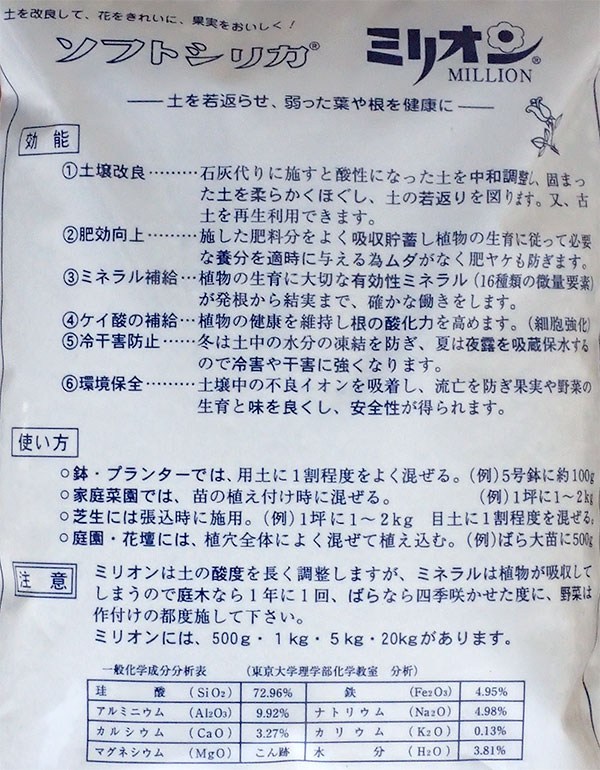 土を改良して、花をきれいに、果実をおいしく！
ソフトシリカ® ミリオン®
MILLION
── 土を若返らせ、弱った葉や根を健康に ──
効能
①土壌改良………石灰代りに施すと酸性になった土を中和調整し、固まっ
た土を柔らかくほぐし、土の若返りを図ります。又、古
土を再生利用できます。
②肥効向上………施した肥料分をよく吸収貯蓄し植物の生育に従って必要
な養分を適時に与える為ムダがなく肥ヤケも防ぎます。
③ミネラル補給…植物の生育に大切な有効性ミネラル（16種類の微量要素）
が発根から結実まで、確かな働きをします。
④ケイ酸の補給…植物の健康を維持し根の酸化力を高めます。（細胞強化）
⑤冷干害防止……冬は土中の水分の凍結を防ぎ、夏は夜露を吸蔵保水する
ので冷害や干害に強くなります。
⑥環境保全………土壌中の不良イオンを吸着し、流亡を防ぎ果実や野菜の
生育と味を良くし、安全性が得られます。
使い方
○鉢・プランターでは、用土に1割程度をよく混ぜる。（例）5号鉢に約100g
○家庭菜園では、苗の植え付け時に混ぜる。 （例）1坪に1～2kg
○芝生には張込時に施用。（例）1坪に1～2kg 目土に1割程度を混ぜる。
○庭園・花壇には、植穴全体によく混ぜて植え込む。（例）ばら大苗に500g
注意
ミリオンは土の酸度を長く調整しますが、ミネラルは植物が吸収して
しまうので庭木なら1年に1回、ばらなら四季咲かせた度に、野菜は
作付けの都度施して下さい。
ミリオンには、500g・1kg・5kg・20kgがあります。
一般化学成分分析表 （東京大学理学部化学教室 分析）
珪酸 （SiO₂） 72.96% 鉄 （Fe₂O₃） 4.95%
アルミニウム （Al₂O₃） 9.92% ナトリウム （Na₂O） 4.98%
カルシウム （CaO） 3.27% カリウム （K₂O） 0.13%
マグネシウム （MgO） こん跡 水分 （H₂O） 3.81%